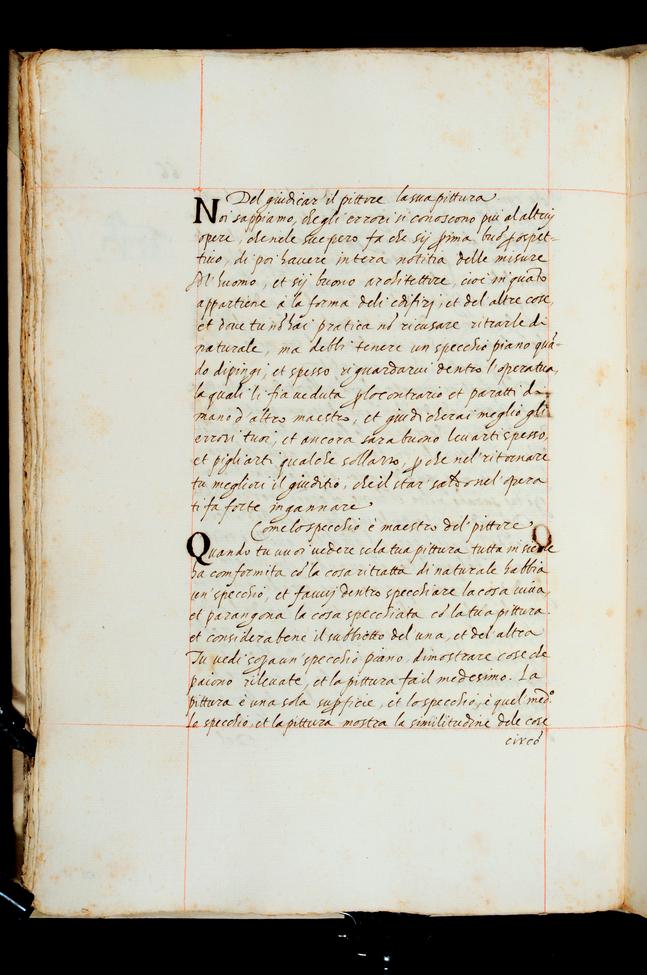 Del giudicar il pittore la sua pittura
Noi sappiamo, che gli errori si conoscono piu al altruj
opere, che nele sue pero fa che sij prima buõ prospet-
tiuo, di poi hauere intera notitia delle misure
del huomo, et sij buono architettore, cioi in quãto
appartiene a la forma deli edifizj, et del altre cose,
et doue tu nõ hai pratica nõ ricusare ritrarle di
naturale, ma debbi tenere un specchio piano quã-
do dipingi, et spesso riguardarui dentro l'opera tua,
la quali li fia ueduta p lo contrario et paratti di
mano d'altro maestro, et giudicherai meglio gli
errori tuoi, et ancora sara buono leuarti spesso,
et pigliarti qualche sollazzo, p che nel ritornare
tu megliori il giuditio, che il star saldo nel opera
ti fa forte ingannare
Come lo specchio è maestro del pittore
Quando tu uuoi uedere se la tua pittura tutta insieme
ha conformita cõ la cosa ritratta di naturale habbia
un' specchio, et fauuj dentro specchiare la cosa uiua,
et parangona la cosa specchiata cõ la tua pittura
et considera bene il subbietto del una, et del altra
Tu uedi un' specchio piano, dimostrare cose che
paiono rileuate, et la pittura fa il medesimo. La
pittura è una sola supficie, et lo specchio, è quel med.º
lo specchio, et la pittura mostra la similitudine dele cose
circõ
Q